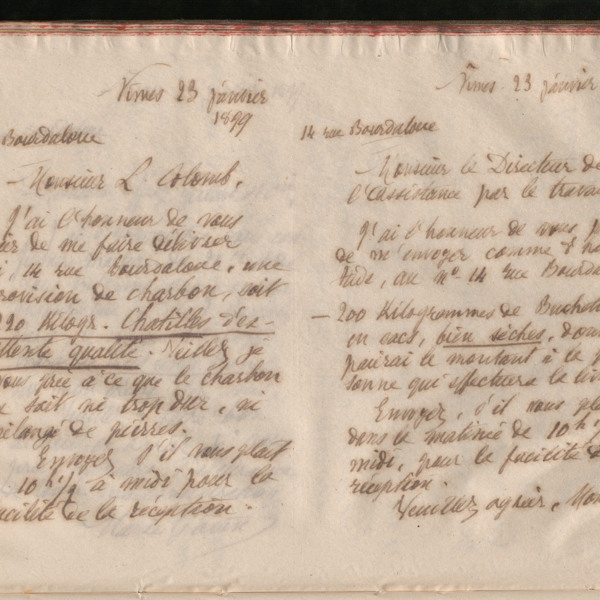 Nîmes 23 janvier
1899
Bourdaloue
Monsieur L. Colomb.
J'ai l'honneur de vous
de me faire délivrer
, 14 rue Bourdaloue, une
provision de charbon, soit
Kilogr. Chatilles d'ex-
cellente qualité. Veillez je
vous prie à ce que le charbon
ne soit ni trop dur, ni
mélangé de pierres.
Envoyez s'il vous plaît
10 h 1/2 à midi pour la
facilité de la réception.
Nîmes 23 janvier
14 rue Bourdaloue
Monsieur le Directeur de
l'assistance par le travail
J'ai l'honneur de vous
de m'envoyer comme d'
, au No 14 rue Bourda
200 Kilogrammes de
en sacs, bien sèches, dont
paierai le montant à la
sonne qui effectuera la
Envoyez, s'il vous
dans la matinée de 10 h 1/2
midi, pour la facilité de
réception.
Veuillez agréer, Mon